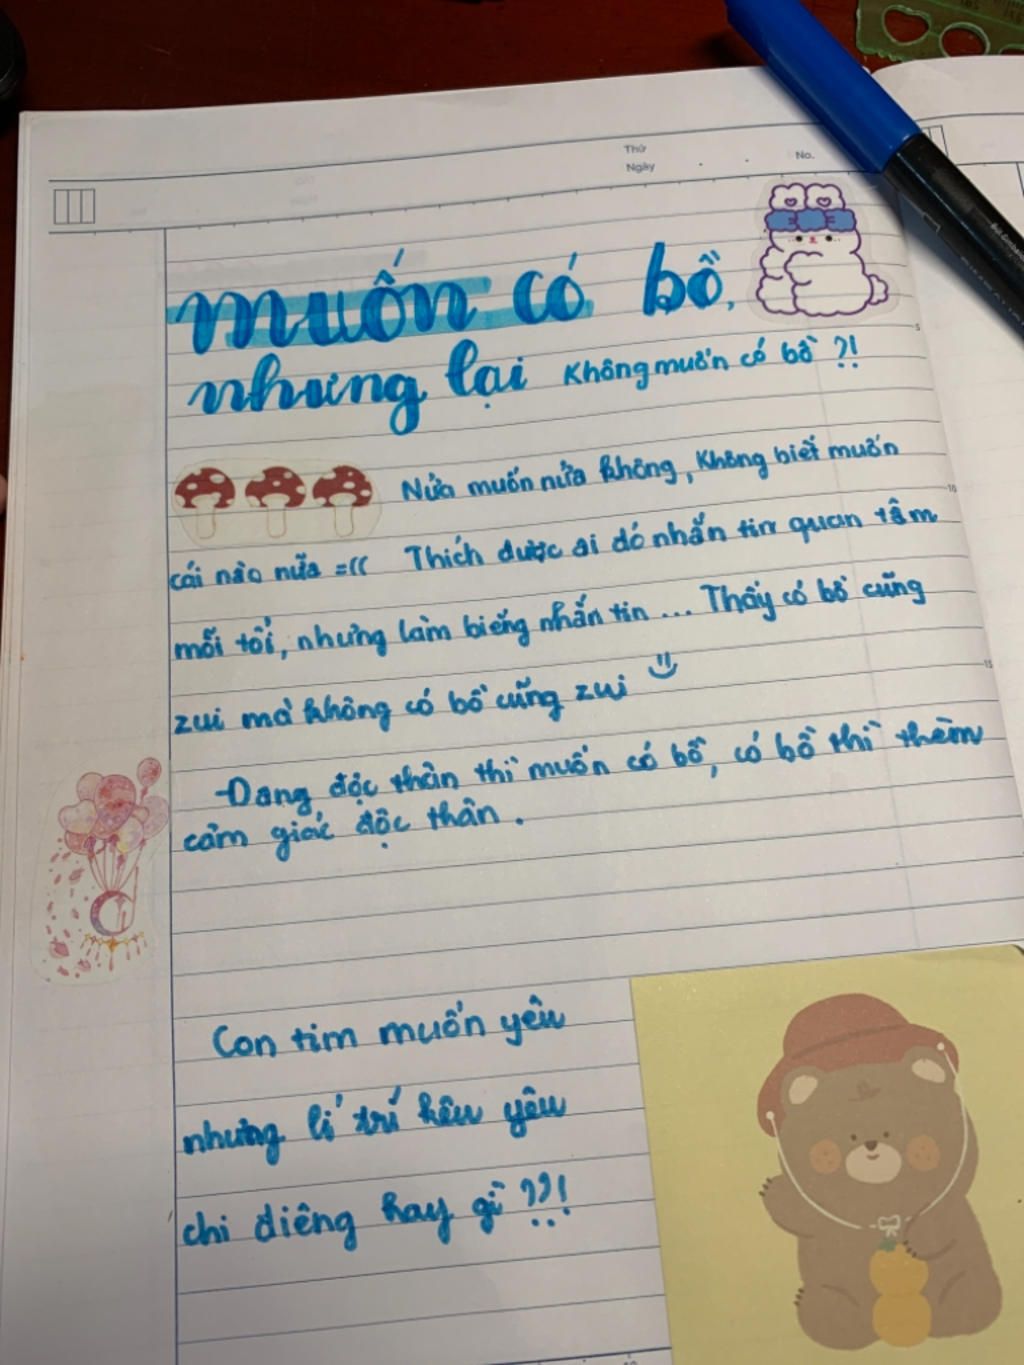 Thứ
Ngày
No.
muốn có bồ,
nhưng lại Không muốn có bồ ?!
5
Nửa muốn nửa không, Không biết muốn
10
cái nào nữa =(( Thích được ai đó nhắn tin quan tâm
mỗi tối, nhưng làm biếng nhắn tin ... Thấy có bồ cũng
15
zui mà không có bồ cũng zui
Đang độc thân thì muốn có bồ, có bồ thì thèm
cảm giác độc thân.
Con tim muốn yêu
nhưng lí trí kêu yêu
chi diêng hay gì ??!